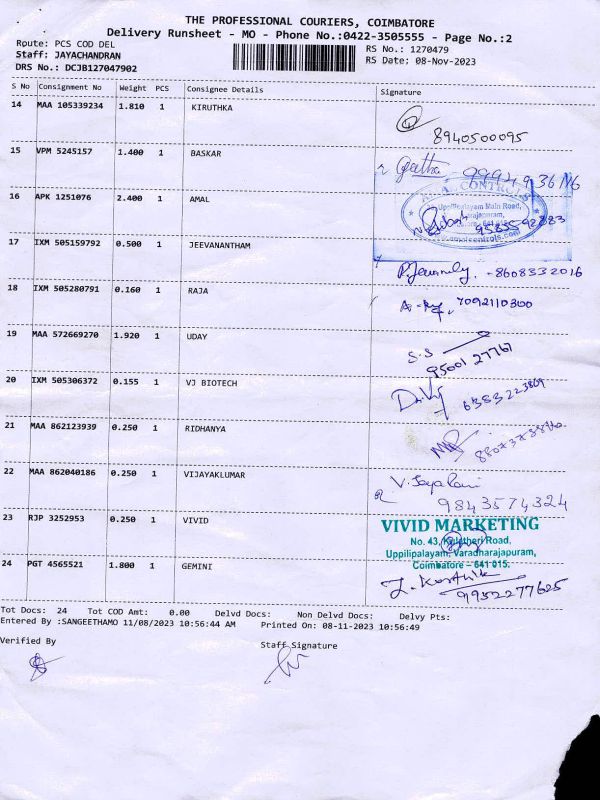 THE PROFESSIONAL COURIERS, COIMBATORE
Delivery Runsheet - MO - Phone No.:0422-3505555 - Page No.:2
Route: PCS COD DEL
Staff: JAYACHANDRAN
DRS No.: DCJB127047902
RS No.: 1270479
RS Date: 08-Nov-2023
S No Consignment No Weight PCS Consignee Details Signature
14 MAA 105339234 1.810 1 KIRUTHKA
8940500095
15 VPM 5245157 1.400 1 BASKAR
Geetha
16 APK 1251076 2.400 1 AMAL
AMAL CONTROLS
Uppilipalayam Main Road,
Varadarajapuram,
Coimbatore - 641 015.
www.amolcontrols.com
9585592883
17 IXM 505159792 0.500 1 JEEVANANTHAM
8608332016
18 IXM 505280791 0.160 1 RAJA
7092110300
19 MAA 572669270 1.920 1 UDAY
S.S
9500127767
20 IXM 505306372 0.155 1 VJ BIOTECH
6383223869
21 MAA 862123939 0.250 1 RIDHANYA
22 MAA 862040186 0.250 1 VIJAYAKLUMAR
9843574324
23 RJP 3252953 0.250 1 VIVID
VIVID MARKETING
No. 43, Kalatheri Road,
Uppilipalayam, Varadharajapuram,
Coimbatore - 641 015.
24 PGT 4565521 1.800 1 GEMINI
Karthik
9952277625
Tot Docs: 24 Tot COD Amt: 0.00 Delvd Docs: Non Delvd Docs: Delvy Pts:
Entered By :SANGEETHAMO 11/08/2023 10:56:44 AM Printed On: 08-11-2023 10:56:49
Verified By
Staff Signature